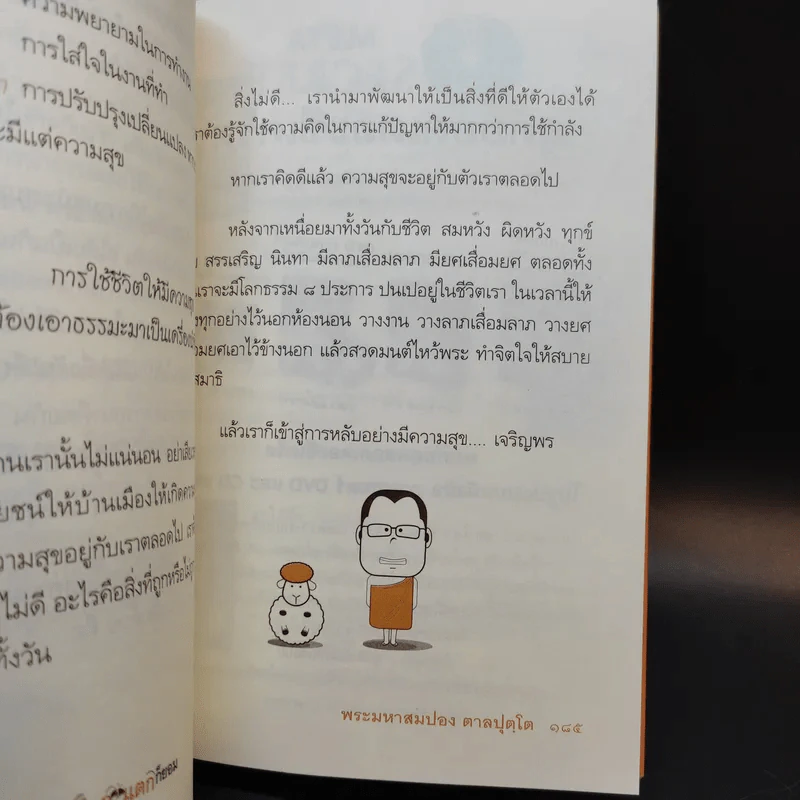 ความพยายามในการทำงาน
การใส่ใจในงานที่ทำ
การปรับปรุงเปลี่ยนแปลง
มีแต่ความสุข
การใช้ชีวิตให้มีความสุข
ต้องเอาธรรมะมาเป็นเครื่อง
เรานั้นไม่แน่นอน อย่า
ให้บ้านเมืองให้เกิด
ความสุขอยู่กับเราตลอดไป
ไม่ดี อะไรคือสิ่งที่ถูกหรือไม่
ทั้งวัน
ก็ยอม
สิ่งไม่ดี... เรานำมาพัฒนาให้เป็นสิ่งที่ดีให้ตัวเองได้
าต้องรู้จักใช้ความคิดในการแก้ปัญหาให้มากกว่าการใช้กำลัง
หากเราคิดดีแล้ว ความสุขจะอยู่กับตัวเราตลอดไป
หลังจากเหนื่อยมาทั้งวันกับชีวิต สมหวัง ผิดหวัง ทุกข์
สรรเสริญ นินทา มีลาภเสื่อมลาภ มียศเสื่อมยศ ตลอดทั้ง
นเราจะมีโลกธรรม ๘ ประการ ปนเปอยู่ในชีวิตเรา ในเวลานี้ให้
งทุกอย่างไว้นอกห้องนอน วางงาน วางลาภเสื่อมลาภ วางยศ
อมยศเอาไว้ข้างนอก แล้วสวดมนต์ไหว้พระ ทำจิตใจให้สบาย
สมาธิ
แล้วเราก็เข้าสู่การหลับอย่างมีความสุข.... เจริญพร
พระมหาสมปอง ตาลปุตฺโต ๑๘๕